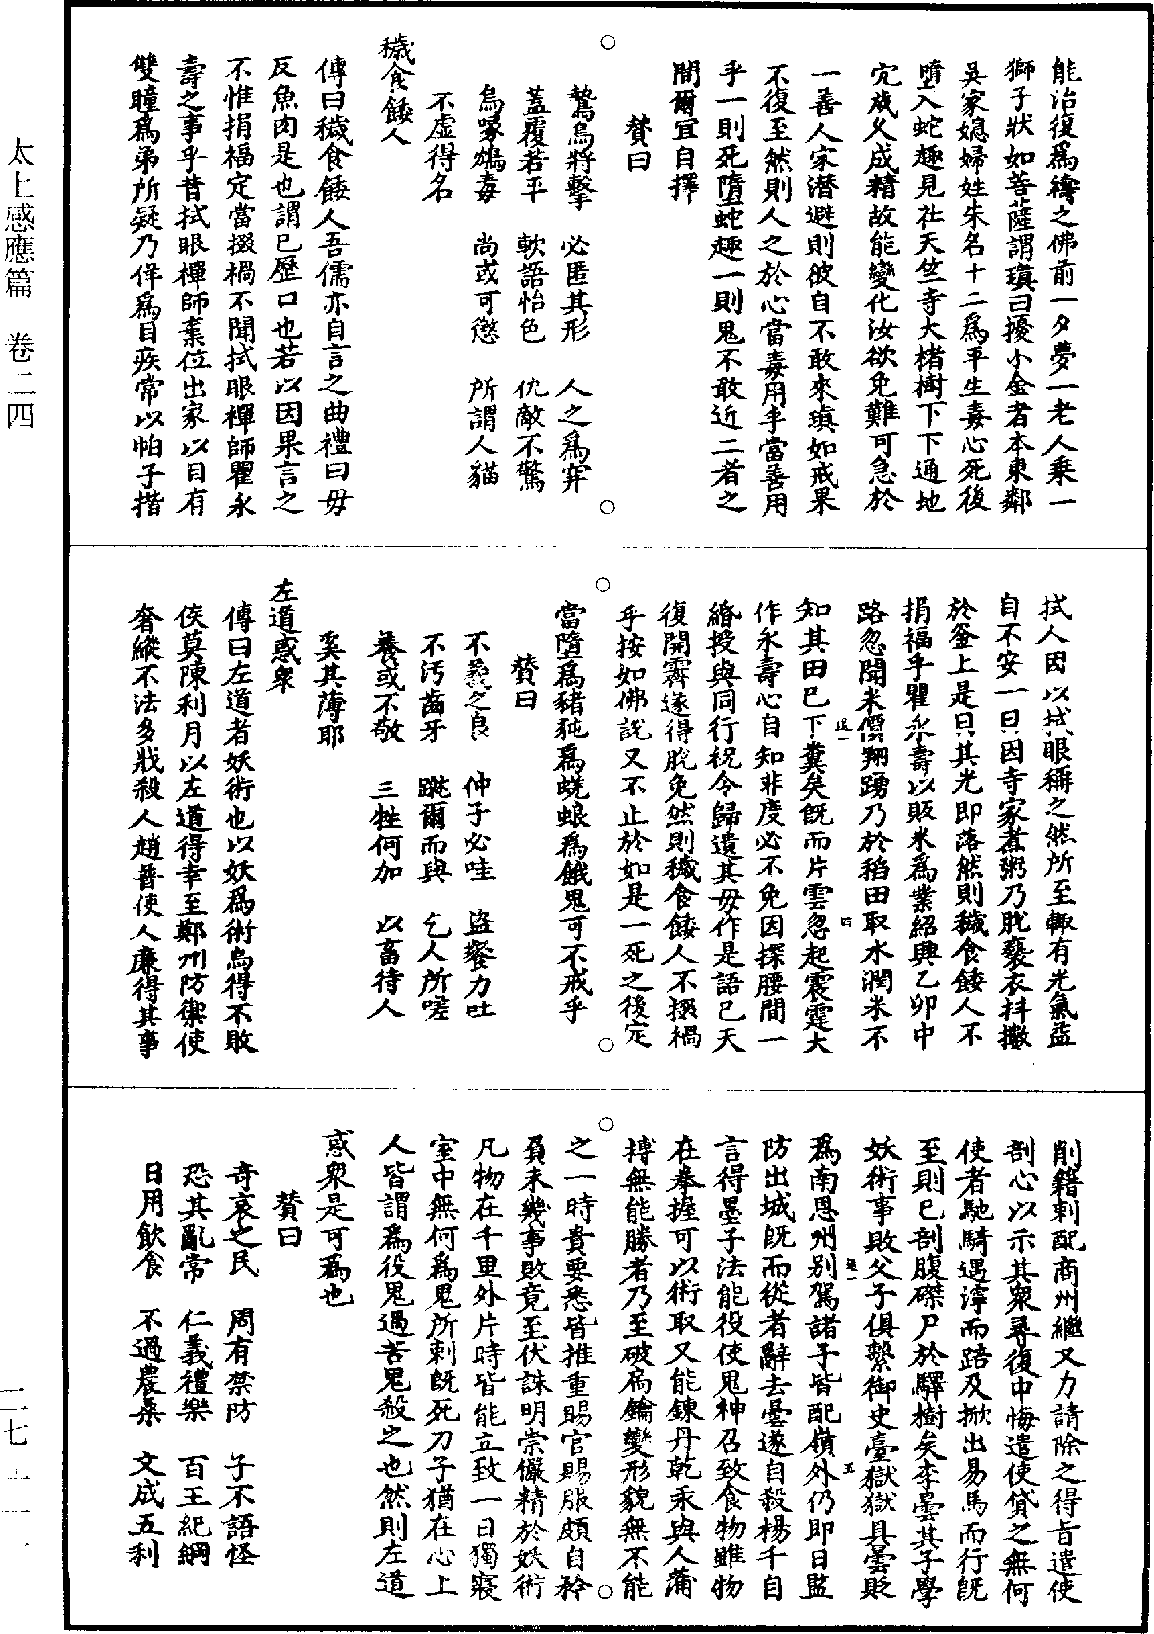 能治復爲禱之佛前一夕夢一老人乗一
獅子狀如菩薩謂瑱曰擾小金者本東鄰
吳家媳婦姓朱名十二爲平生毒心死後
墮入蛇趣見社天竺寺大楮樹下下通地
穴歲乆成精故能變化汝欲免難可急於
一善人家潜避則彼自不敢來瑱如戒果
不復至然則人之於心當毒用乎當善用
乎一則死墮蛇趣一則鬼不敢近二者之
間爾宜自擇
賛曰
鷙鳥將擊　必匿其形　人之爲穽
蓋覆若平　軟語怡色　仇敵不驚
烏喙鴆毒　尚或可懲　所謂人貓
不虚得名
穢食餧人
傳曰穢食餧人吾儒亦自言之曲禮曰毋
反魚肉是也謂已歷口也若以因果言之
不惟捐福定當掇禍不聞拭眼禪師瞿永
壽之事乎昔拭眼禪師棄位出家以目有
雙瞳爲弟所疑乃佯爲目疾常以帕子揩
拭人因以拭眼稱之然所至輙有光氣益
自不安一日因寺家煮粥乃脫褻衣抖擻
於釜上是日其光即落然則穢食餧人不
捐福乎瞿永壽以販米爲業紹興乙卯中
路忽聞米價翔踴乃於稻田取水潤米不
知其田已下糞矣旣而片雲忽起震霆大
作永壽心自知非度必不免因探腰間一
緡投與同行祝令歸遺其母作是語已天
復開霽遂得脫免然則穢食餧人不掇禍
乎按如佛說又不止於如是一死之後定
當墮爲豬狗爲蜣蜋爲餓鬼可不戒乎
賛曰
不義之良　仲子必哇　盜餐力吐
不汚齒牙　蹴爾而與　乞人所嗟
養或不敬　三牲何加　以畜待人
奚其薄耶
左道惑衆
傳曰左道者妖術也以妖爲術烏得不敗
侯莫陳利月以左道得幸至鄭州防禦使
奢縱不法多戕殺人趙普使人廉得其事
削籍刺配商州繼又力請除之得旨遣使
剖心以示其衆尋復中悔遣使貸之無何
使者馳騎遇濘而踣及掀出易馬而行旣
至則已剖腹磔尸於驛樹矣李曇其子學
妖術事敗父子俱繫御史臺獄獄具曇貶
爲南恩州别駕諸子皆配嶺外仍即日監
防出城旣而從者辭去曇遂自殺楊千自
言得墨子法能役使鬼神召致食物雖物
在拳握可以術取又能鍊丹乾汞與人蒲
搏無能勝者乃至破扃鑰變形貌無不能
之一時貴要悉皆推重賜官賜服頗自矜
負未幾事敗竟至伏誅明崇儼精於妖術
凡物在千里外片時皆能立致一日獨寢
室中無何爲鬼所刺旣死刀子猶在心上
人皆謂爲役鬼過苦鬼殺之也然則左道
惑衆是可爲也
賛曰
奇衺之民　周有禁防　子不語怪
恐其亂常　仁義禮樂　百王紀綱
日用飲食　不過農桑　文成五利
太上感應篇　卷二四